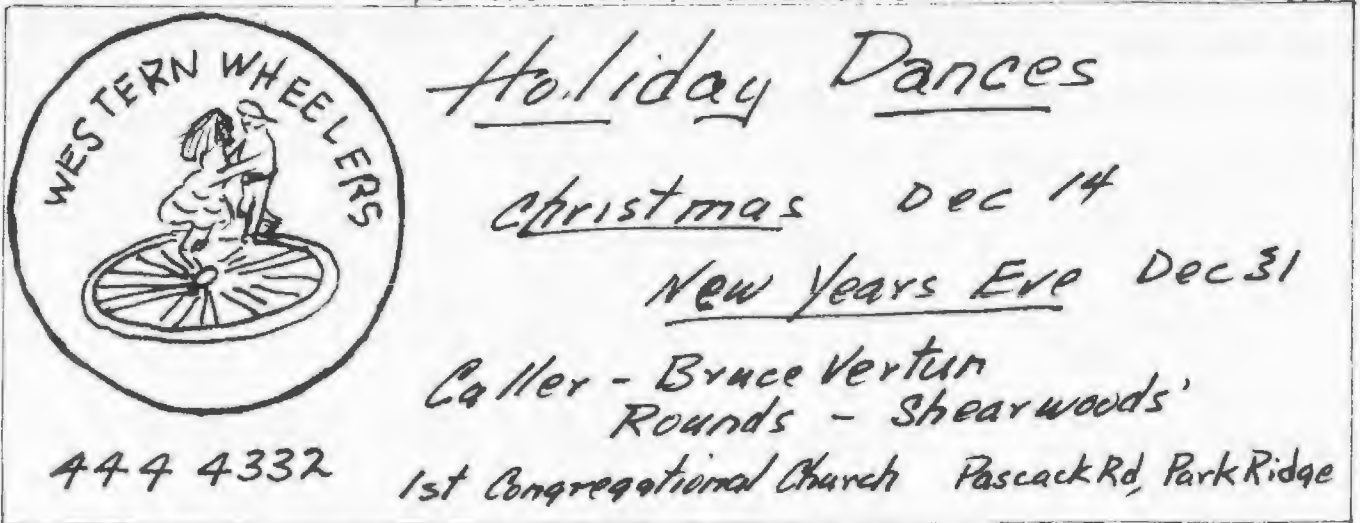 WESTERN WHEELERS
Holiday Dances
Christmas Dec 14
New Years Eve Dec 31
Caller - Bruce Vertun
Rounds - Shearwoods'
444 4332
1st Congregational Church Pascack Rd, Park Ridge